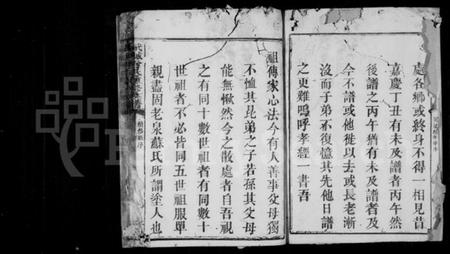 處各鄉或終身不得一相見昔
嘉慶丁丑有未及譜者丙午然
後譜之丙午猶有未及譜者及
今不譜或他徙以去或長老漸
沒而子弟不復憶其先他日譜
之更難嗚呼孝經一書吾
祖傳家心法今有人善事父母獨
不恤其昆弟之子若孫其父母
能無恫然今之散處者自吾視
之有同十數世祖者有同數十
世祖者不必皆同五世祖服單
親盡固老泉蘇氏所謂塗人也